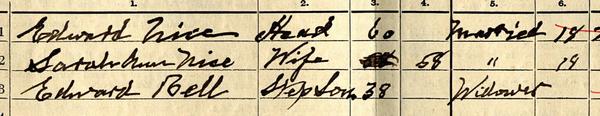 1. 2. 3. 4. 5. 6.
1 Edward Nice Head 60 Married 18
2 Sarah Ann Nise Wife 58 " 18
3 Edward Bell Step Son 38 Widower